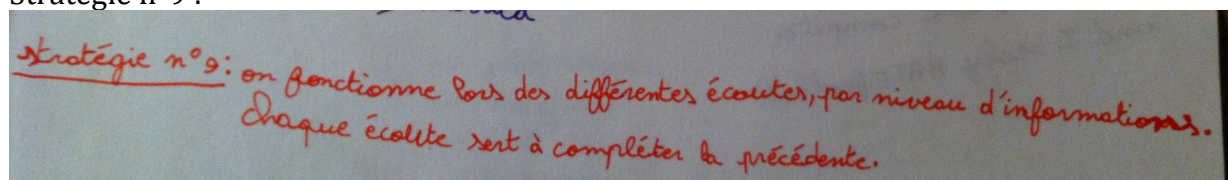 Stratégie n°9 :
stratégie n°9: on fonctionne lors des différentes écoutes, par niveau d'informations.
Chaque écoute sert à compléter la précédente.